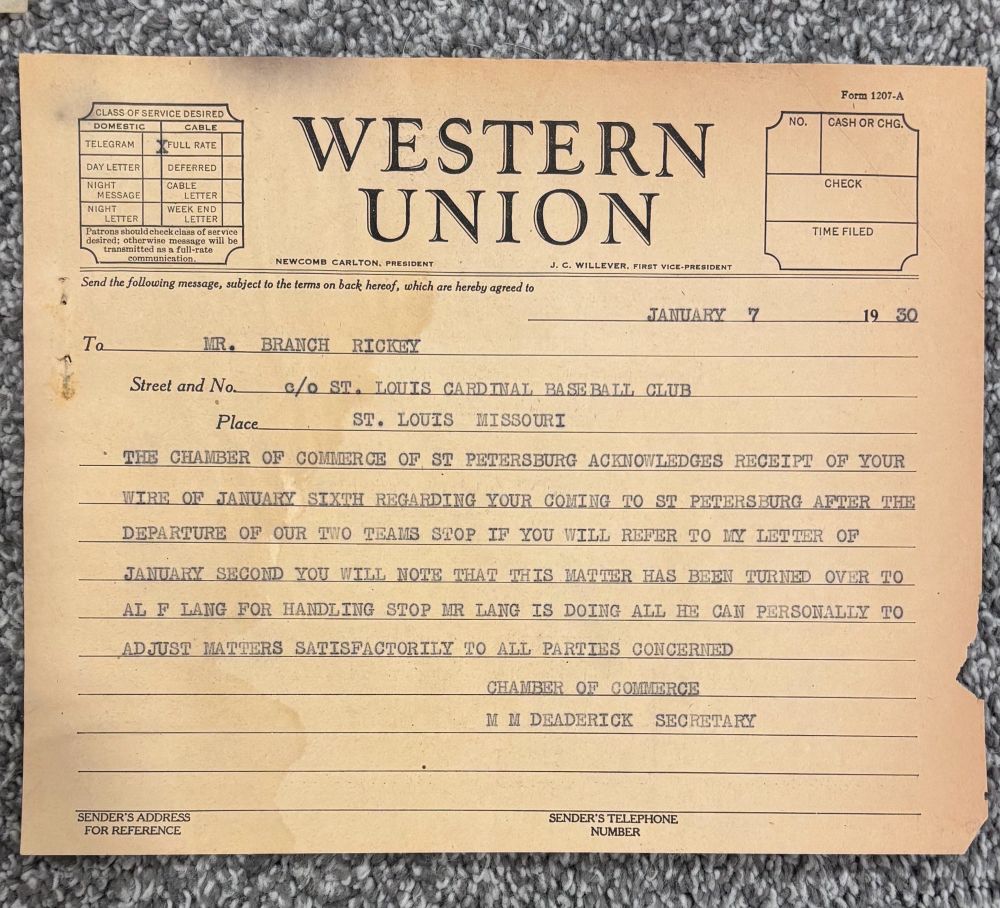 Form 1207-A
CLASS OF SERVICE DESIRED
DOMESTIC CABLE
TELEGRAM X FULL RATE
DAY LETTER DEFERRED
NIGHT MESSAGE CABLE LETTER
NIGHT LETTER WEEK END LETTER
Patrons should check class of service
desired; otherwise message will be
transmitted as a full-rate
communication.
WESTERN
UNION
NEWCOMB CARLTON, PRESIDENT J. C. WILLEVER, FIRST VICE-PRESIDENT
NO. CASH OR CHG.
CHECK
TIME FILED
Send the following message, subject to the terms on back hereof, which are hereby agreed to
JANUARY 7 19 30
To MR. BRANCH RICKEY
Street and No. c/o ST. LOUIS CARDINAL BASEBALL CLUB
Place ST. LOUIS MISSOURI
THE CHAMBER OF COMMERCE OF ST PETERSBURG ACKNOWLEDGES RECEIPT OF YOUR
WIRE OF JANUARY SIXTH REGARDING YOUR COMING TO ST PETERSBURG AFTER THE
DEPARTURE OF OUR TWO TEAMS STOP IF YOU WILL REFER TO MY LETTER OF
JANUARY SECOND YOU WILL NOTE THAT THIS MATTER HAS BEEN TURNED OVER TO
AL F LANG FOR HANDLING STOP MR LANG IS DOING ALL HE CAN PERSONALLY TO
ADJUST MATTERS SATISFACTORILY TO ALL PARTIES CONCERNED
CHAMBER OF COMMERCE
M M DEADERICK SECRETARY
SENDER'S ADDRESS
FOR REFERENCE
SENDER'S TELEPHONE
NUMBER